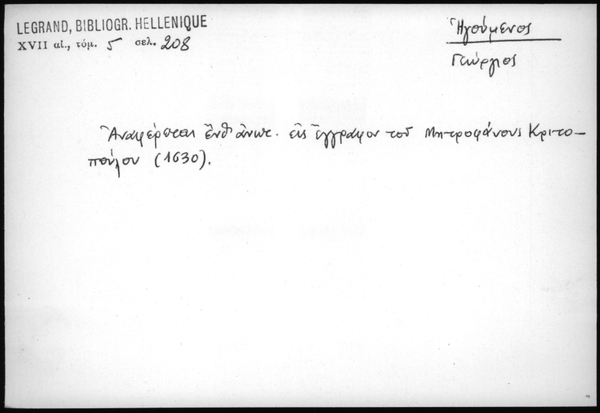 LEGRAND, BIBLIOGR. HELLENIQUE
XVII αἰ., τόμ. 5 σελ. 208
Ἡγούμενος
Γεώργιος
Ἀναφέρεται ἔνθ' ἀνωτ. εἰς ἔγγραφον τοῦ Μητροφάνους Κριτο-
πούλου (1630).